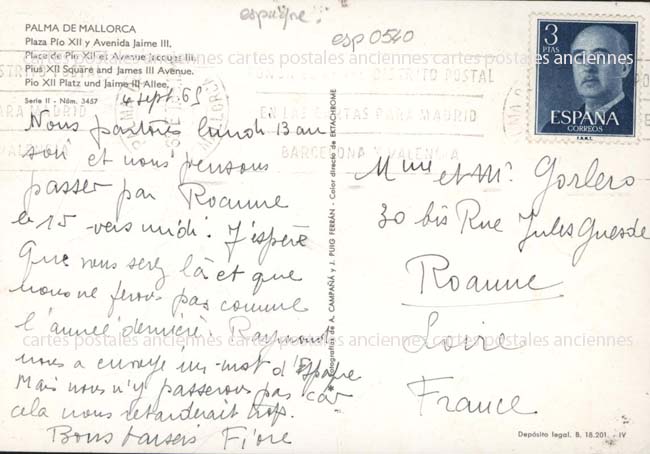 espagne.
esp 0540
PALMA DE MALLORCA
Plaza Pío XII y Avenida Jaime III.
Place de Pie XII et Avenue Jacques III.
Pius XII Square and James III Avenue.
Pio XII Platz und Jaime III Allee.
Serie II - Núm. 3457
4 sept 65
Nous partons lundi 13 au
soir et nous pensons
passer par Roanne
le 15 vers midi. J'espère
que vous serez là et que
nous ne ferons pas comme
l'année dernière. Raymond
nous a envoyé un mot d'Espagne
Mais nous n'y passerons pas car
cela nous retarderait trop.
Bons baisers Fiore
Fotografías de A. CAMPAÑÁ y J. PUIG FERRÁN - Color directo de EKTACHROME
3
PTAS
ESPAÑA
CORREOS
F.N.M.T.
DISTRITO POSTAL
EN LAS CARTAS PARA MADRID
BARCELONA Y VALENCIA
Mme et Mr. Gorlero
30 bis Rue Jules Guesde
Roanne
Loire
France
Depósito legal. B. 18.201. - IV
cartes postales anciennes cartes postales anciennes cartes postales anciennes
cartes postales anciennes cartes postales anciennes cartes postales anciennes